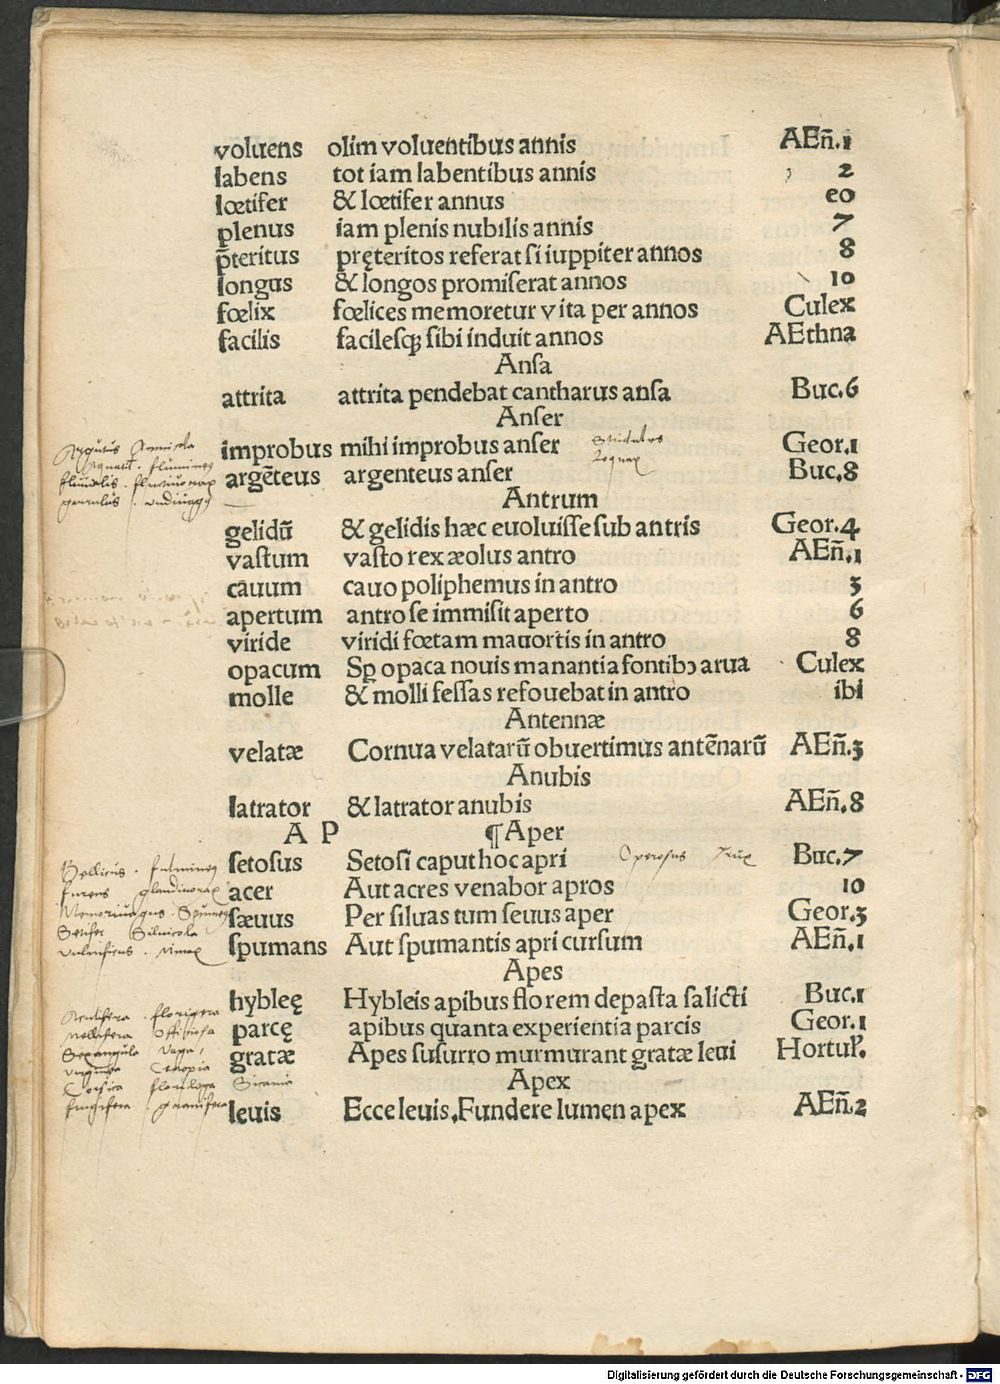 voluens olim voluentibus annis AEñ.1
labens tot iam labentibus annis 2
lœtifer & lœtifer annus eo
plenus iam plenis nubilis annis 7
p̄teritus pręteritos referat si iuppiter annos 8
longus & longos promiserat annos 10
fœlix fœlices memoretur vita per annos Culex
facilis facilesq; sibi induit annos AEthna
Ansa
attrita attrita pendebat cantharus ansa Buc.6
Anser
improbus mihi improbus anser Geor.1
argēteus argenteus anser Buc.8
Antrum
gelidū & gelidis hæc euoluisse sub antris Geor.4
vastum vasto rex æolus antro AEñ.1
cauum cauo poliphemus in antro 3
apertum antro se immisit aperto 6
viride viridi fœtam mauortis in antro 8
opacum Sꝑ opaca nouis manantia fontibꝰ arua Culex
molle & molli fessas refouebat in antro ibi
Antennæ
velatæ Cornua velatarū obuertimus antēnarū AEñ.3
Anubis
latrator & latrator anubis AEñ.8
A P ¶Aper
setosus Setosi caput hoc apri Operosus Trux Buc.7
acer Aut acres venabor apros 10
sæuus Per siluas tum seuus aper Geor.3
spumans Aut spumantis apri cursum AEñ.1
Apes
hybleę Hybleis apibus florem depasta salicti Buc.1
parcę apibus quanta experientia parcis Geor.1
gratæ Apes susurro murmurant gratæ leui Hortul.
Apex
leuis Ecce leuis.Fundere lumen apex AEñ.2
Argutus Amnicola
Stridulus
Loquax
Bellicus . fulmineus
furens glandivorax
Setifer Silvicola
vulnificus . Minax
florigera
Mellifera Officiosa
Sexangula Vaga
Cecropia
Corsica florilega Sicania
Digitalisierung gefördert durch die Deutsche Forschungsgemeinschaft - DFG